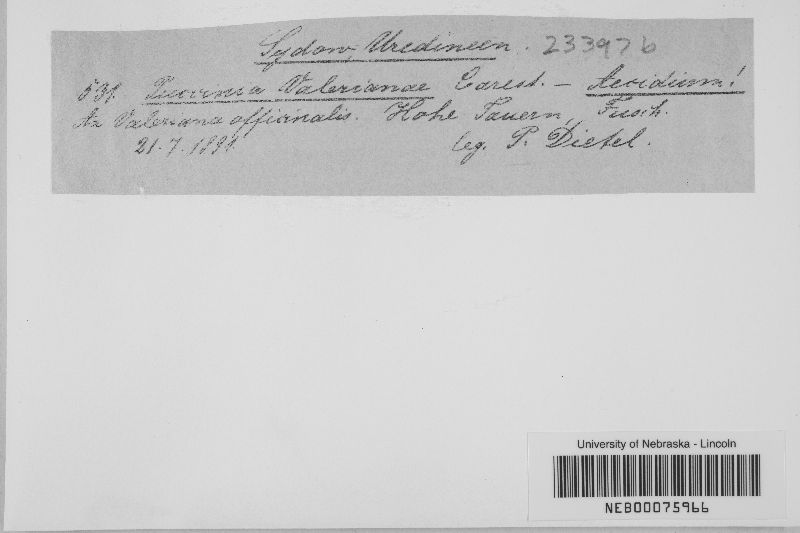 Sydow, Uredineen. 233976
531. Puccinia Valerianae Carest. – Aecidium!
Az Valeriana officinalis. Hohe Tauern, Fusch.
21.7.1891. leg. P. Dietel.
University of Nebraska - Lincoln
NEB00075966